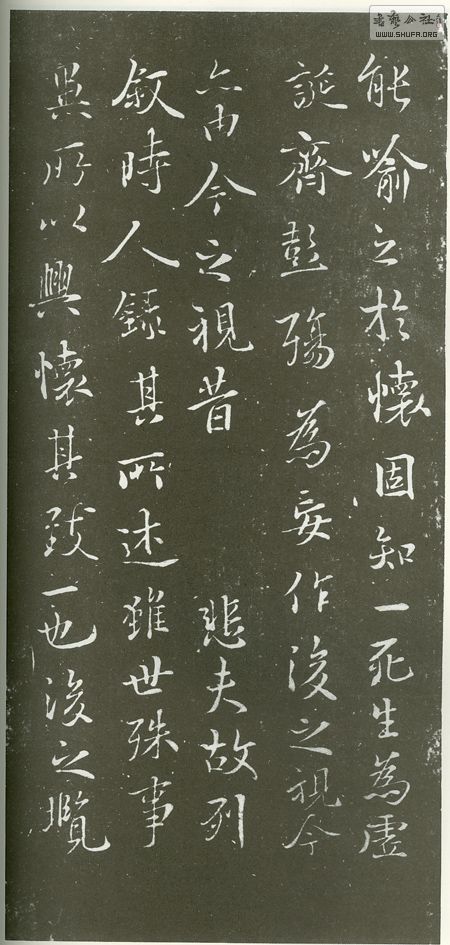 能喻之於懷固知一死生為虛
誕齊彭殤為妄作後之視今
亦由今之視昔 悲夫故列
叙時人錄其所述雖世殊事
異所以興懷其致一也後之攬
書藝公社
WWW.SHUFA.ORG